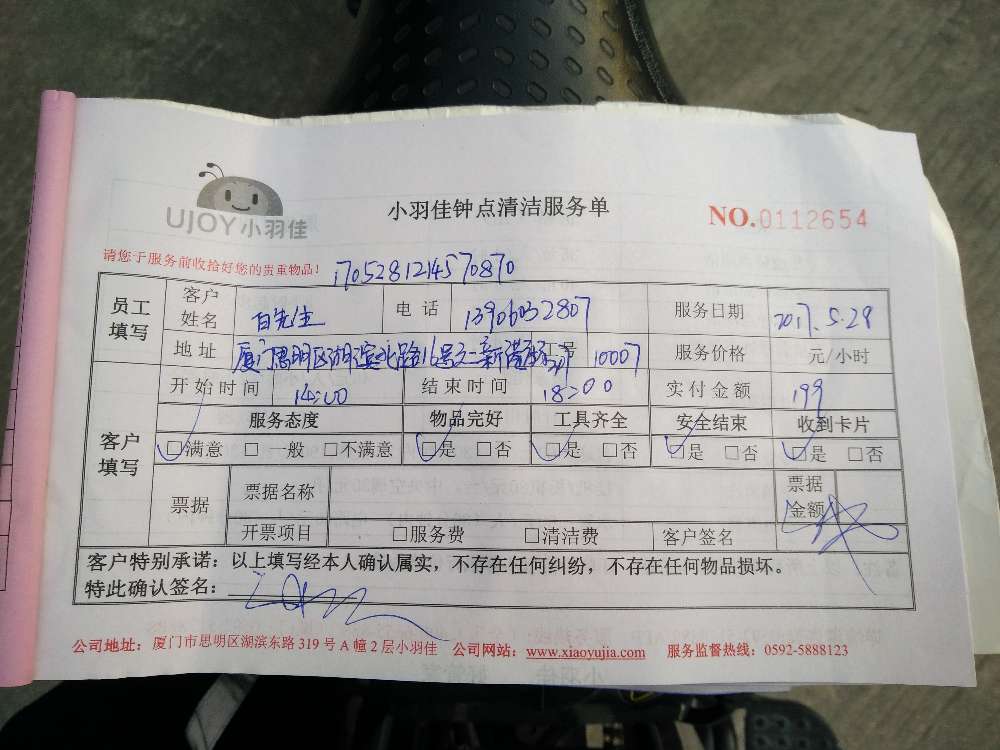 UJOY小羽佳
小羽佳钟点清洁服务单
NO.0112654
请您于服务前收拾好您的贵重物品！
1705281214570870
员工填写 客户姓名 白先生 电话 13906032807 服务日期 2017.5.29
地址 厦门思明区湖滨北路16号之二新港 10007 服务价格 元/小时
开始时间 14:00 结束时间 18:00 实付金额 199
客户填写 服务态度 物品完好 工具齐全 安全结束 收到卡片
☑满意 □ 一般 □不满意 ☑是 □否 ☑是 □否 ☑是 □否 ☑是 □否
票据 票据名称 票据金额
开票项目 □服务费 □清洁费 客户签名
客户特别承诺：以上填写经本人确认属实，不存在任何纠纷，不存在任何物品损坏。
特此确认签名：
公司地址：厦门市思明区湖滨东路 319 号 A 幢 2 层小羽佳 公司网站：www.xiaoyujia.com 服务监督热线：0592-5888123